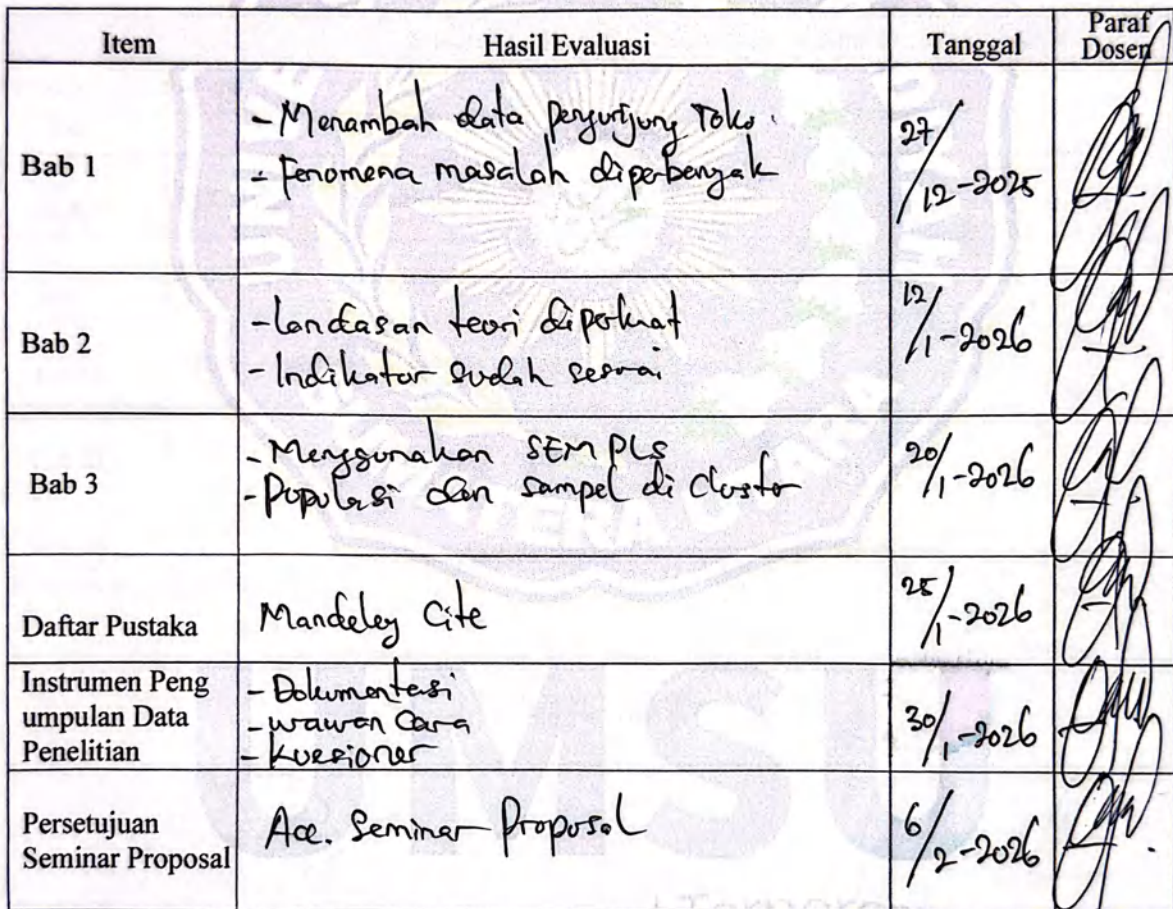 Item Hasil Evaluasi Tanggal Paraf
Dosen
Bab 1
- Menambah data pengunjung Toko.
- Fenomena masalah diperbanyak
27/12-2025
Bab 2
- Landasan teori diperkuat
- Indikator sudah sesuai
12/1-2026
Bab 3
- Menggunakan SEM PLS
- Populasi dan sampel di Cluster
20/1-2026
Daftar Pustaka
Mandeley Cite
25/1-2026
Instrumen Peng
umpulan Data
Penelitian
- Dokumentasi
- wawancara
- kuesioner
30/1-2026
Persetujuan
Seminar Proposal
Acc. Seminar Proposal
6/2-2026
UMSU